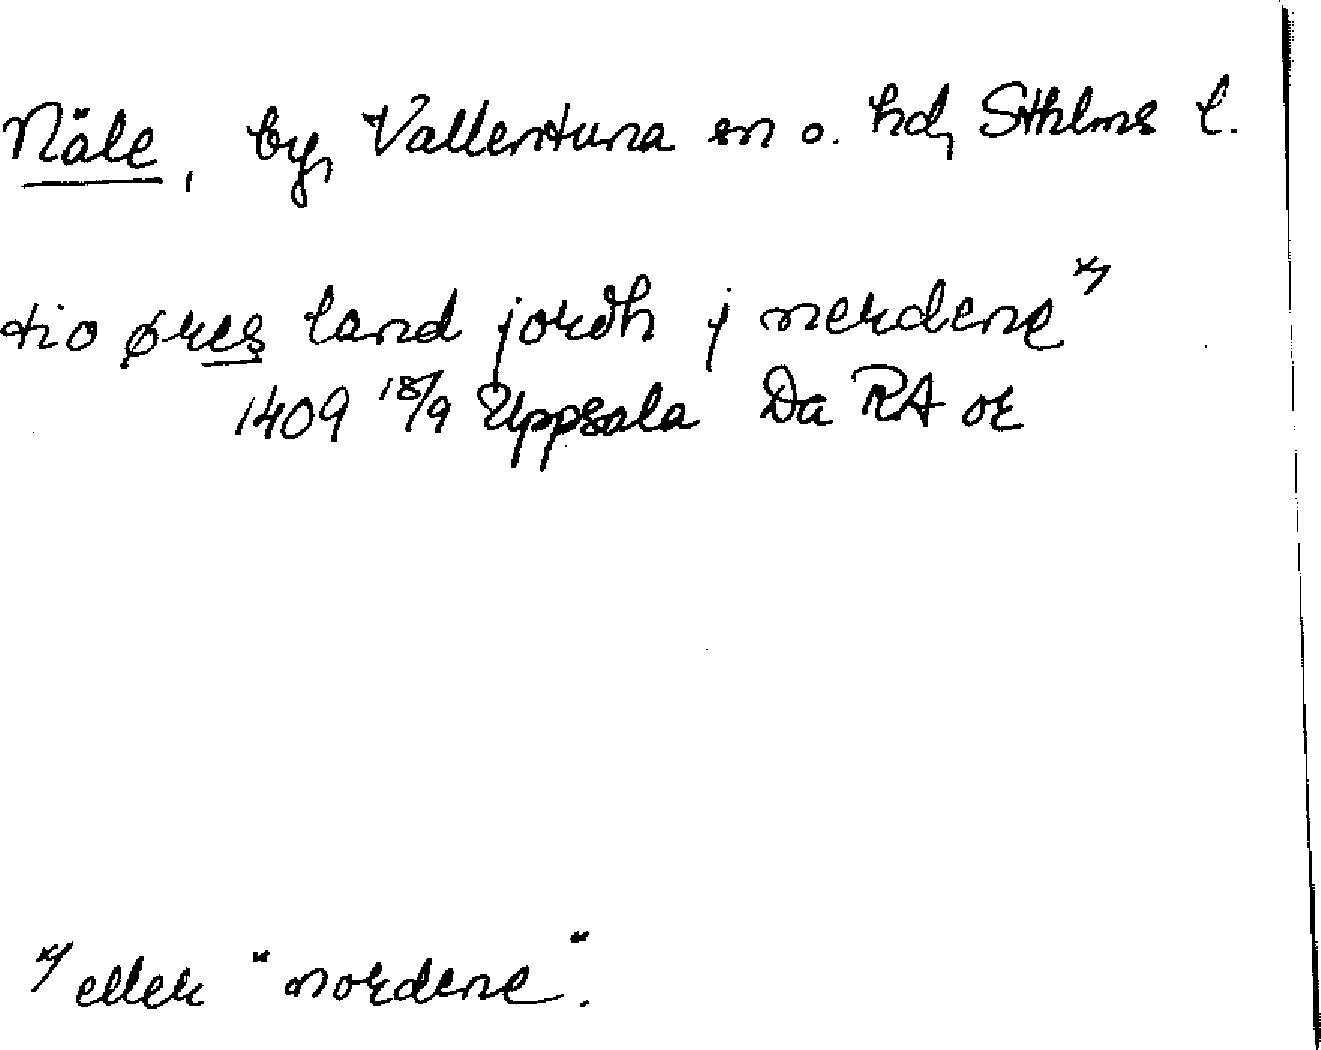 Näle, by, Vallentuna sn o. hd, Sthlms l.
tio øres land jordh j nerdene x)
1409 18/9 Uppsala Da RA or
x) eller "nordene".